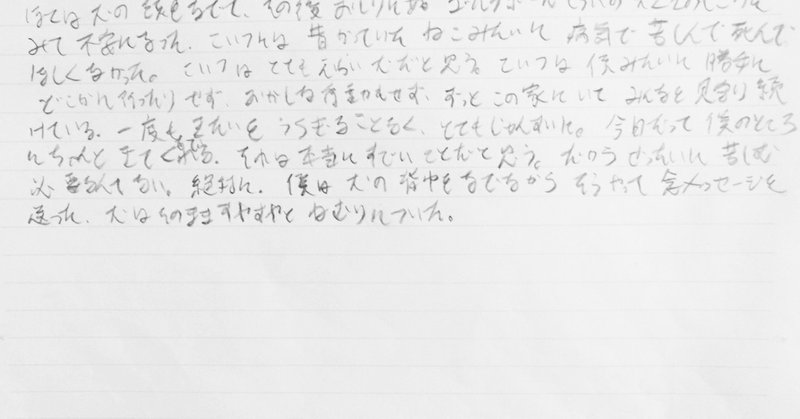 ぼくは犬の頭をなでて、その後おしりにあるゴルフボールくらいの大きさのしこりを
みて不安になった。こいつには昔かっていたねこみたいに病気で苦しんで死んで
ほしくなかった。こいつはとてもえらい犬だと思う。こいつは僕みたいに勝手に
どこかに行ったりせず、おかしな行動もせず、ずっとこの家にいてみんなを見守り続
けている。一度もきたいをうらぎることなく、とてもじゅんすいに。今日だって僕のところ
にちゃんと来てくれる。それは本当にすごいことだと思う。だからぜったいに苦しむ
必要なんてない。絶対に。僕は犬の背中をなでながらそうやって念メッセージを
送った。犬はそのまますやすやとねむりについた。